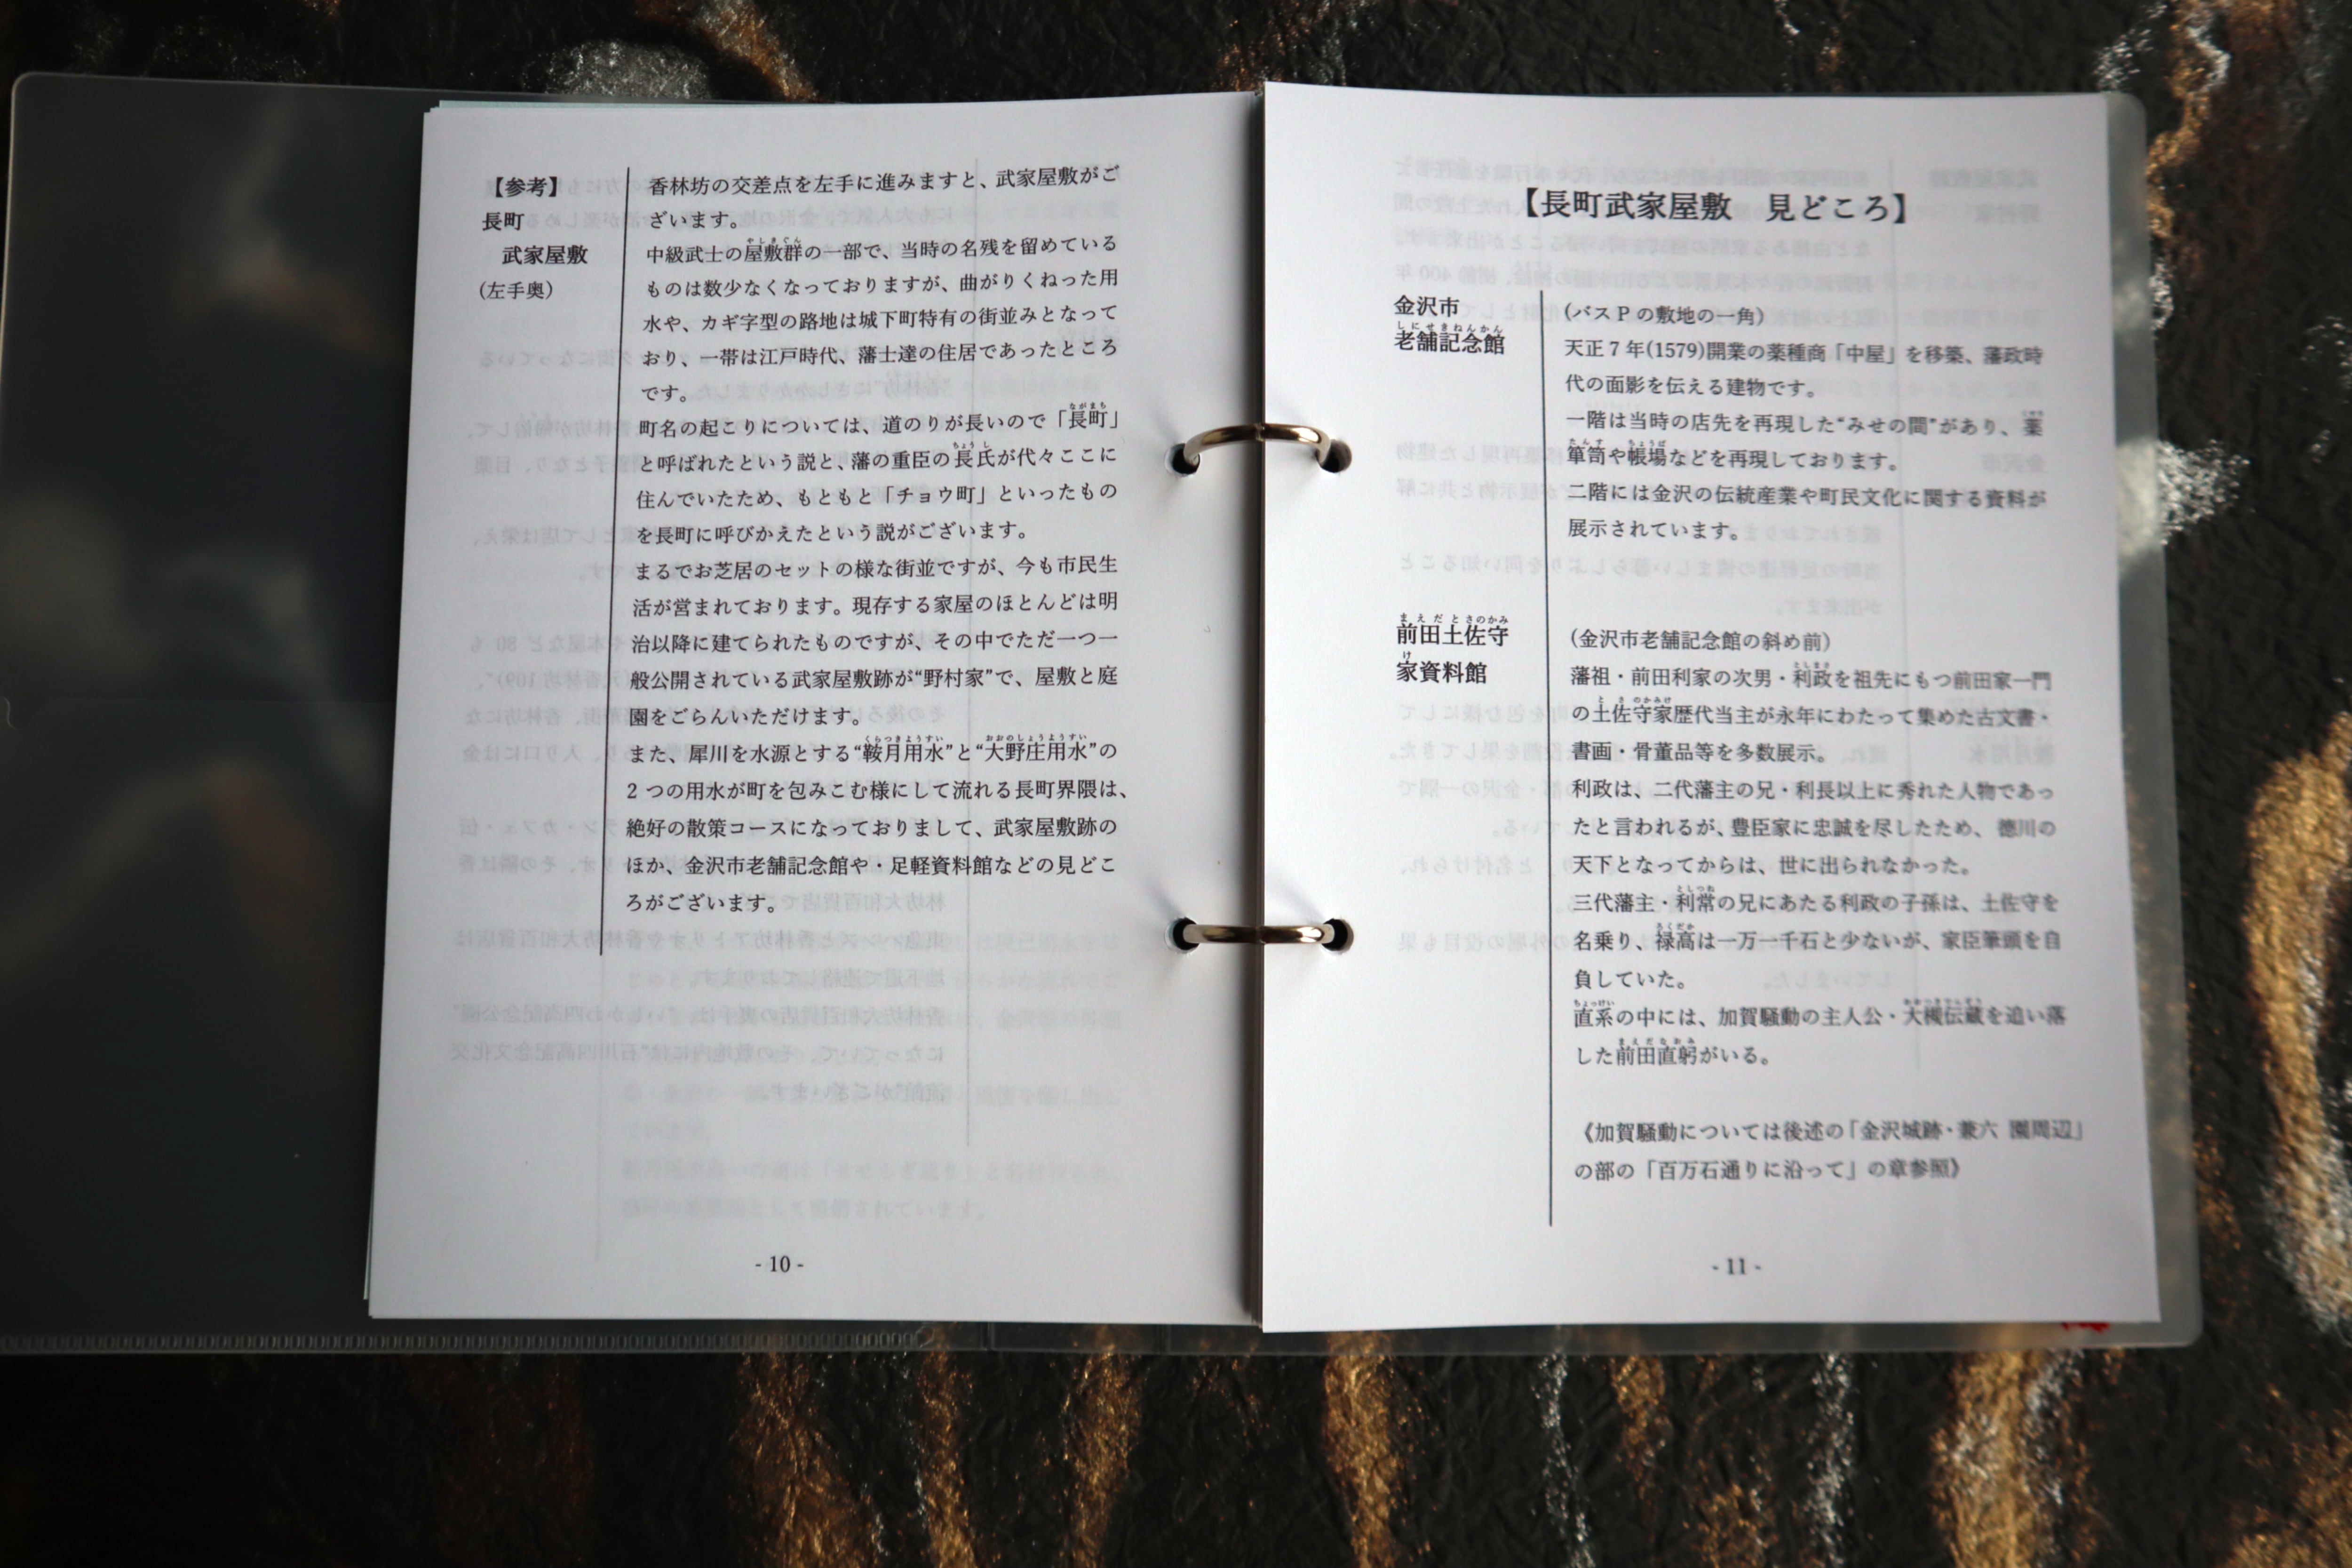 【参考】
長町
武家屋敷
(左手奥)
香林坊の交差点を左手に進みますと、武家屋敷がご
ざいます。
中級武士の屋敷群の一部で、当時の名残を留めている
ものは数少なくなっておりますが、曲がりくねった用
水や、カギ字型の路地は城下町特有の街並みとなって
おり、一帯は江戸時代、藩士達の住居であったところ
です。
町名の起こりについては、道のりが長いので「長町」
と呼ばれたという説と、藩の重臣の長氏が代々ここに
住んでいたため、もともと「チョウ町」といったもの
を長町に呼びかえたという説がございます。
まるでお芝居のセットの様な街並ですが、今も市民生
活が営まれております。現存する家屋のほとんどは明
治以降に建てられたものですが、その中でただ一つ一
般公開されている武家屋敷跡が“野村家”で、屋敷と庭
園をごらんいただけます。
また、犀川を水源とする“鞍月用水”と“大野庄用水”の
2 つの用水が町を包みこむ様にして流れる長町界隈は、
絶好の散策コースになっておりまして、武家屋敷跡の
ほか、金沢市老舗記念館や・足軽資料館などの見どこ
ろがございます。
- 10 -
【長町武家屋敷　見どころ】
金沢市
老舗記念館
(バス P の敷地の一角)
天正 7 年(1579)開業の薬種商「中屋」を移築、藩政時
代の面影を伝える建物です。
一階は当時の店先を再現した“みせの間”があり、薬
箪笥や帳場などを再現しております。
二階には金沢の伝統産業や町民文化に関する資料が
展示されています。
前田土佐守
家資料館
(金沢市老舗記念館の斜め前)
藩祖・前田利家の次男・利政を祖先にもつ前田家一門
の土佐守家歴代当主が永年にわたって集めた古文書・
書画・骨董品等を多数展示。
利政は、二代藩主の兄・利長以上に秀れた人物であっ
たと言われるが、豊臣家に忠誠を尽したため、徳川の
天下となってからは、世に出られなかった。
三代藩主・利常の兄にあたる利政の子孫は、土佐守を
名乗り、禄高は一万一千石と少ないが、家臣筆頭を自
負していた。
直系の中には、加賀騒動の主人公・大槻伝蔵を追い落
した前田直躬がいる。
《加賀騒動については後述の「金沢城跡・兼六 園周辺」
の部の「百万石通りに沿って」の章参照》
- 11 -